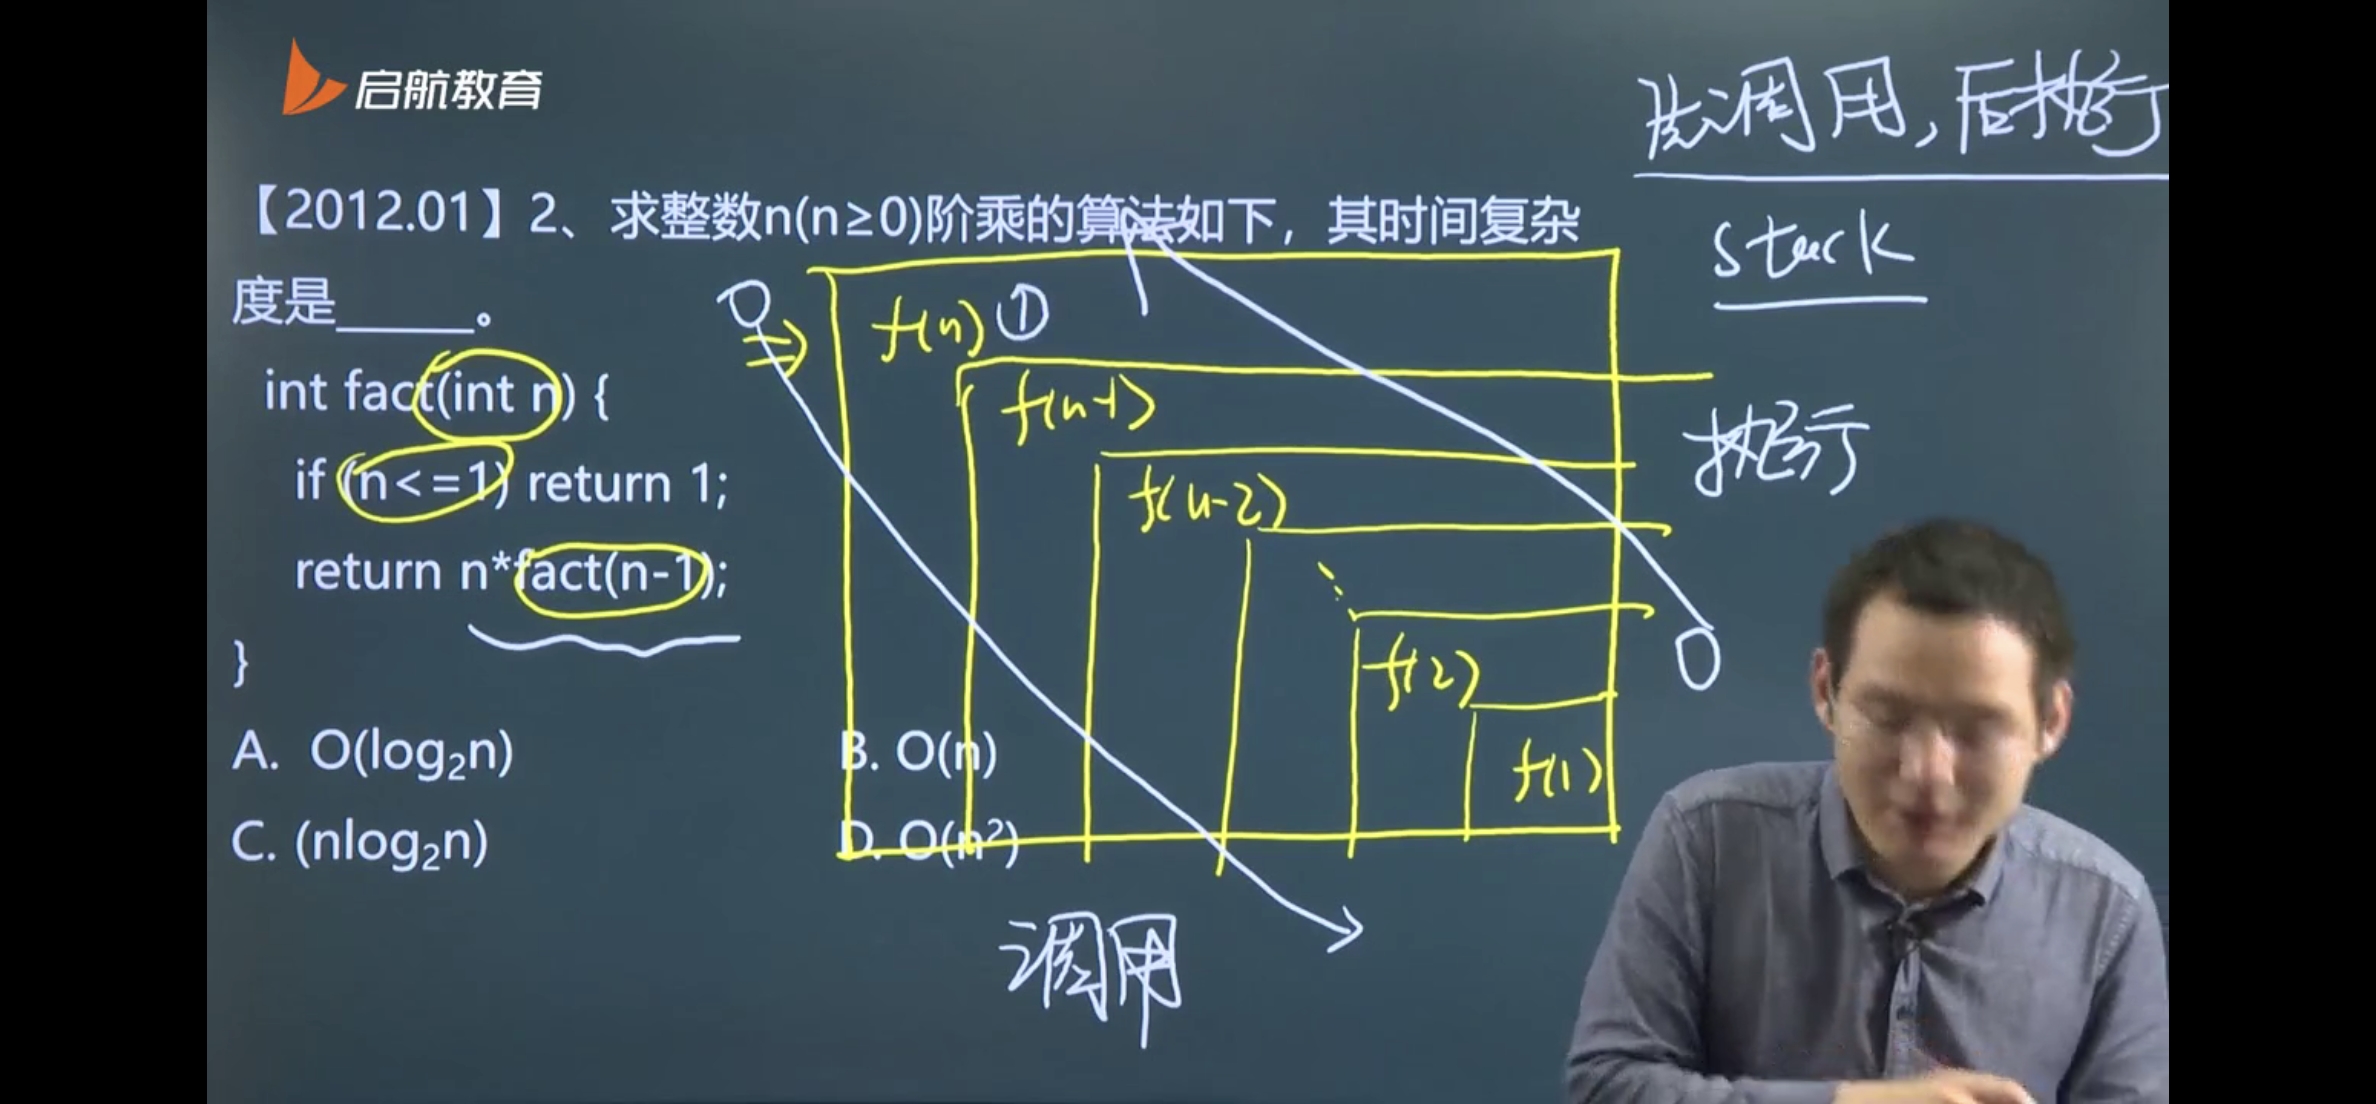 启航教育
先调用,后执行
【2012.01】2、求整数n(n≥0)阶乘的算法如下，其时间复杂
stack
度是_____。
f(n) ①
int fact(int n) {
f(n-1)
执行
if (n<=1) return 1;
f(n-2)
return n*fact(n-1);
f(2)
}
A. O(log₂n)
B. O(n)
f(1)
C. (nlog₂n)
D. O(n²)
调用